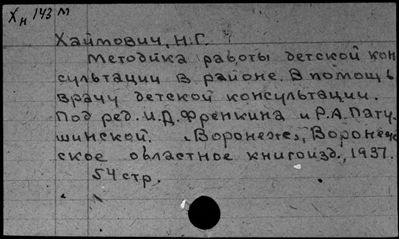 Хн 143 м
Хаймович, Н.Г.
Методика работы детской кон
сультации в районе. В помощь
врачу детской консультации.
Под ред. И.Д. Френкина и Р.А. Пату-
шинской. Воронеж, Воронеж
ское областное книгоизд., 1937.
54 стр.